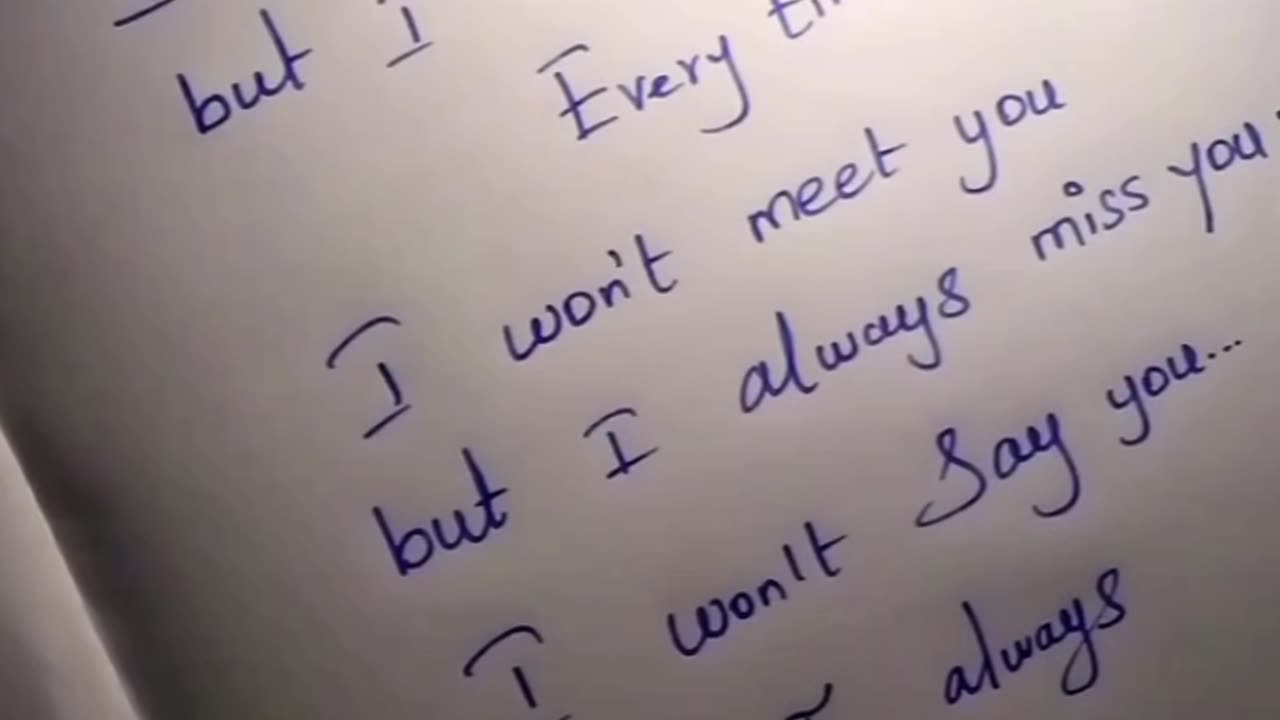 but I
Every
I won't meet you
but I always miss you
I won't say you...
always